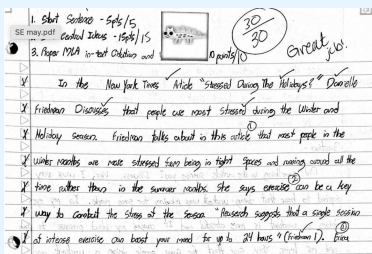 1. Start Sentence - 5pts/5
SE may.pdf
Control Ideas - 15pts/15
3. Proper MLA in-text Citation and 10 points/10
30/30
Great job!
In the New York Times Article "Stressed During The Holidays?" Danielle
Friedman Discusses that people are most stressed during the Winter and
Holiday season. Friedman talks about in this article that most people in the
1
winter months are more stressed from being in tight spaces and running around all the
2
time rather than in the summer months. She says exercise can be a key
way to combat the stress of the season "Research suggests that a single session
of intense exercise can boost your mood for up to 24 hours" (Friedman 1). Erica